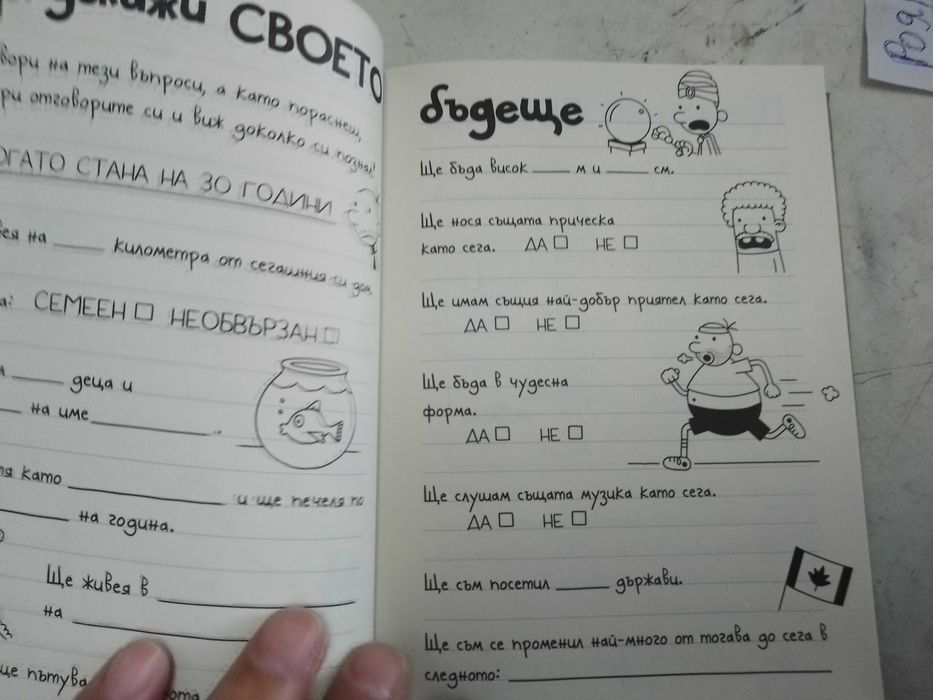 СВОЕТО
на тези въпроси, а като пораснеш,
отговорите си и виж доколко си познал!
СТАНА НА 30 ГОДИНИ
на ____ километра от сегашния си дом.
СЕМЕЕН □ НЕОБВЪРЗАН □
____ деца и
____ на име ____________.
като ____________ и ще печеля по
____ на година.
Ще живея в ____________
на ____________
ще пътува
бъдеще
Ще бъда висок ____ м и ____ см.
Ще нося същата прическа
като сега. ДА □ НЕ □
Ще имам същия най-добър приятел като сега.
ДА □ НЕ □
Ще бъда в чудесна
форма.
ДА □ НЕ □
Ще слушам същата музика като сега.
ДА □ НЕ □
Ще съм посетил ____ държави.
Ще съм се променил най-много от тогава до сега в
следното: ____________